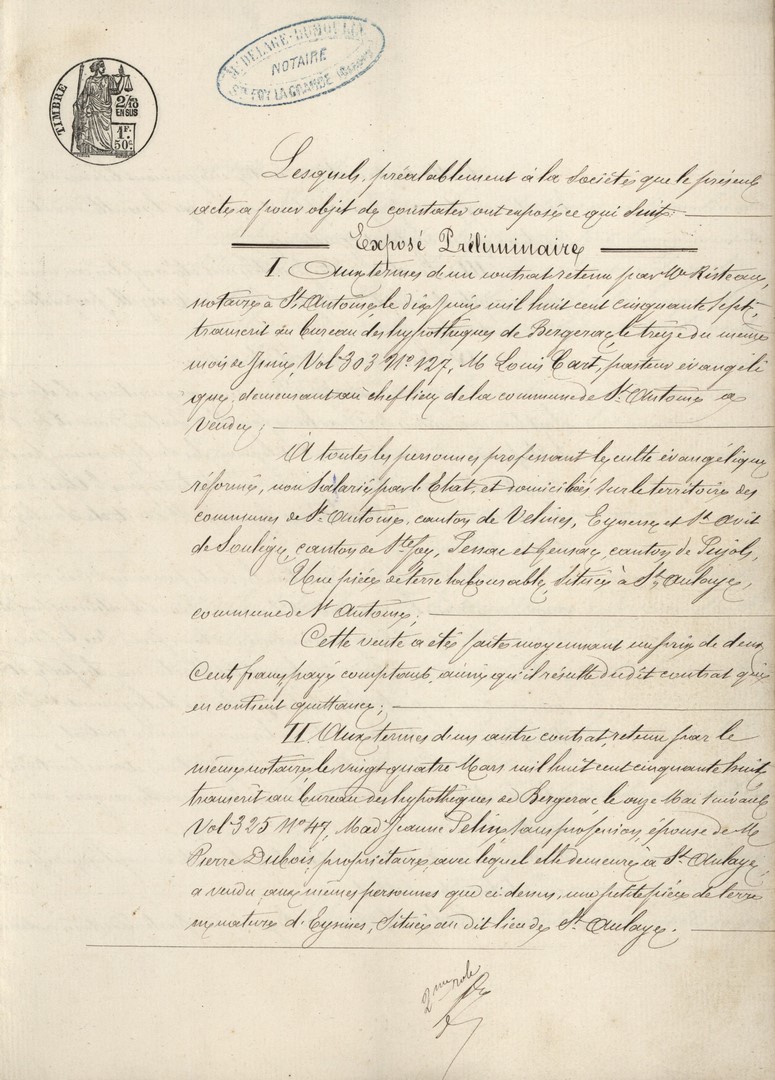 TIMBRE
2/10
EN SUS
1F.
50c.
Me DELAGE-DUMOULIN
NOTAIRE
Ste FOY LA GRANDE (GIRONDE)
Lesquels, préalablement à la Société que le présent
acte a pour objet de constater ont exposé ce qui suit
Exposé Préliminaire
I. Aux termes d'un contrat retenu par Me Risteau,
notaire à St Antoine, le dix juin mil huit cent cinquante sept,
transcrit au bureau des hypothèques de Bergerac, le treize du même
mois de Juin, Vol 303 No 127, M Louis Cart, pasteur évangéli
que, demeurant au chef lieu de la commune de St Antoine a
vendu;
A toutes les personnes professant le culte évangélique
réformé, non salarié par l'Etat, et domiciliées sur le territoire des
communes de St Antoine, canton de Vélines, Eynesse et St Avit
de Soulège, canton de Ste Foy, Pessac et Gensac, canton de Pujols,
Une pièce de terre labourable, située à St Aulaye,
commune de St Antoine;
Cette vente a été faite moyennant un prix de deux
Cents francs payé comptant, ainsi qu'il résulte du dit contrat qui
en contient quittance;
II Aux termes d'un autre contrat, retenu par le
même notaire, le vingt quatre Mars mil huit cent cinquante huit,
transcrit au bureau des hypothèques de Bergerac, le onze Mai suivant
Vol 325 No 47, Made Jeanne Pelin, sans profession, épouse de M
Pierre Dubois, propriétaire, avec lequel elle demeure à St Aulaye,
a vendu aux mêmes personnes que ci-dessus, une petite pièce de terre
en nature d', située au dit lieu de St Aulaye.
2me rôle